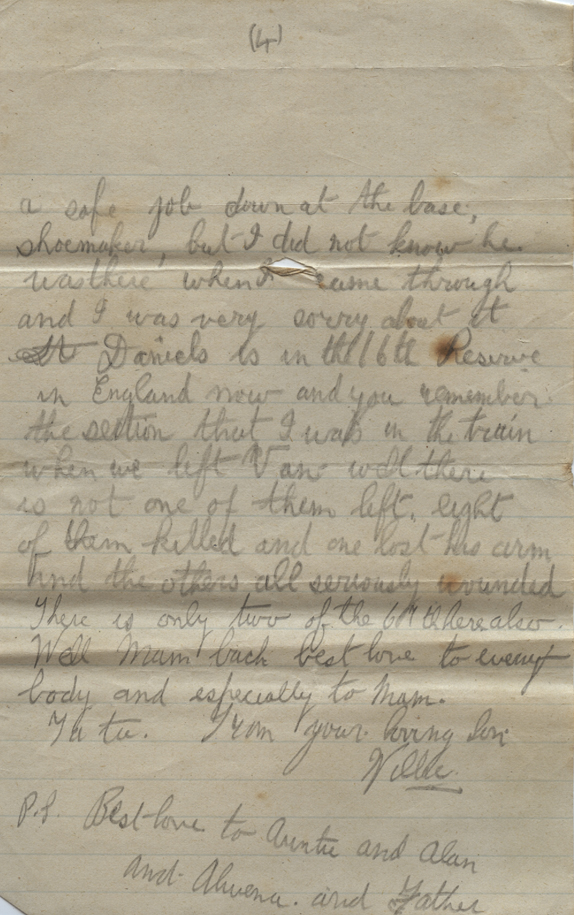 (4)
a safe job down at the base,
shoemaker, but I did not know he
was there when I came through
and I was very sorry about it
Daniels is in the 16th Reserve
in England now and you remember
the section that I was in the train
when we left Van well there
is not one of them left, eight
of them killed and one lost his arm
And the others all seriously wounded
There is only two of the there also.
Well Mam back best love to every
body and especially to Mam.
Ta ta. From your loving Son
Willie.
P.S. Best love to Auntie and Alan
and and Father